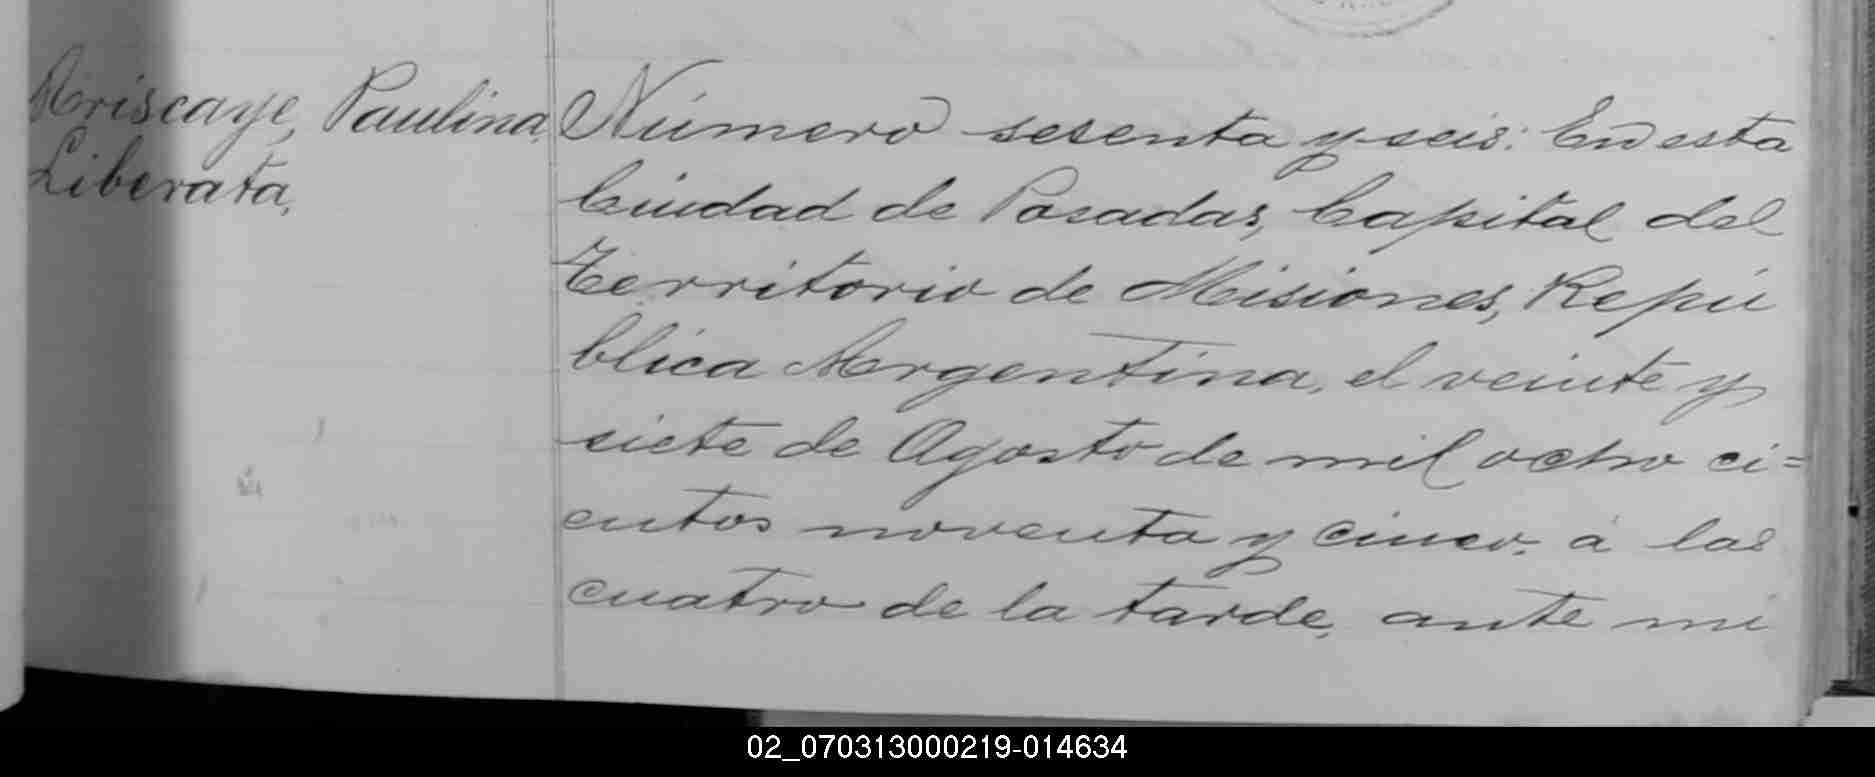 Ariscaye, Paulina,
Liberata,
Número sesenta y seis: En esta
Ciudad de Posadas, Capital del
Territorio de Misiones, Repú
blica Argentina, el veinte y
siete de Agosto de mil ocho ci=
entos noventa y cinco, á las
cuatro de la tarde, ante mi
02_070313000219-014634